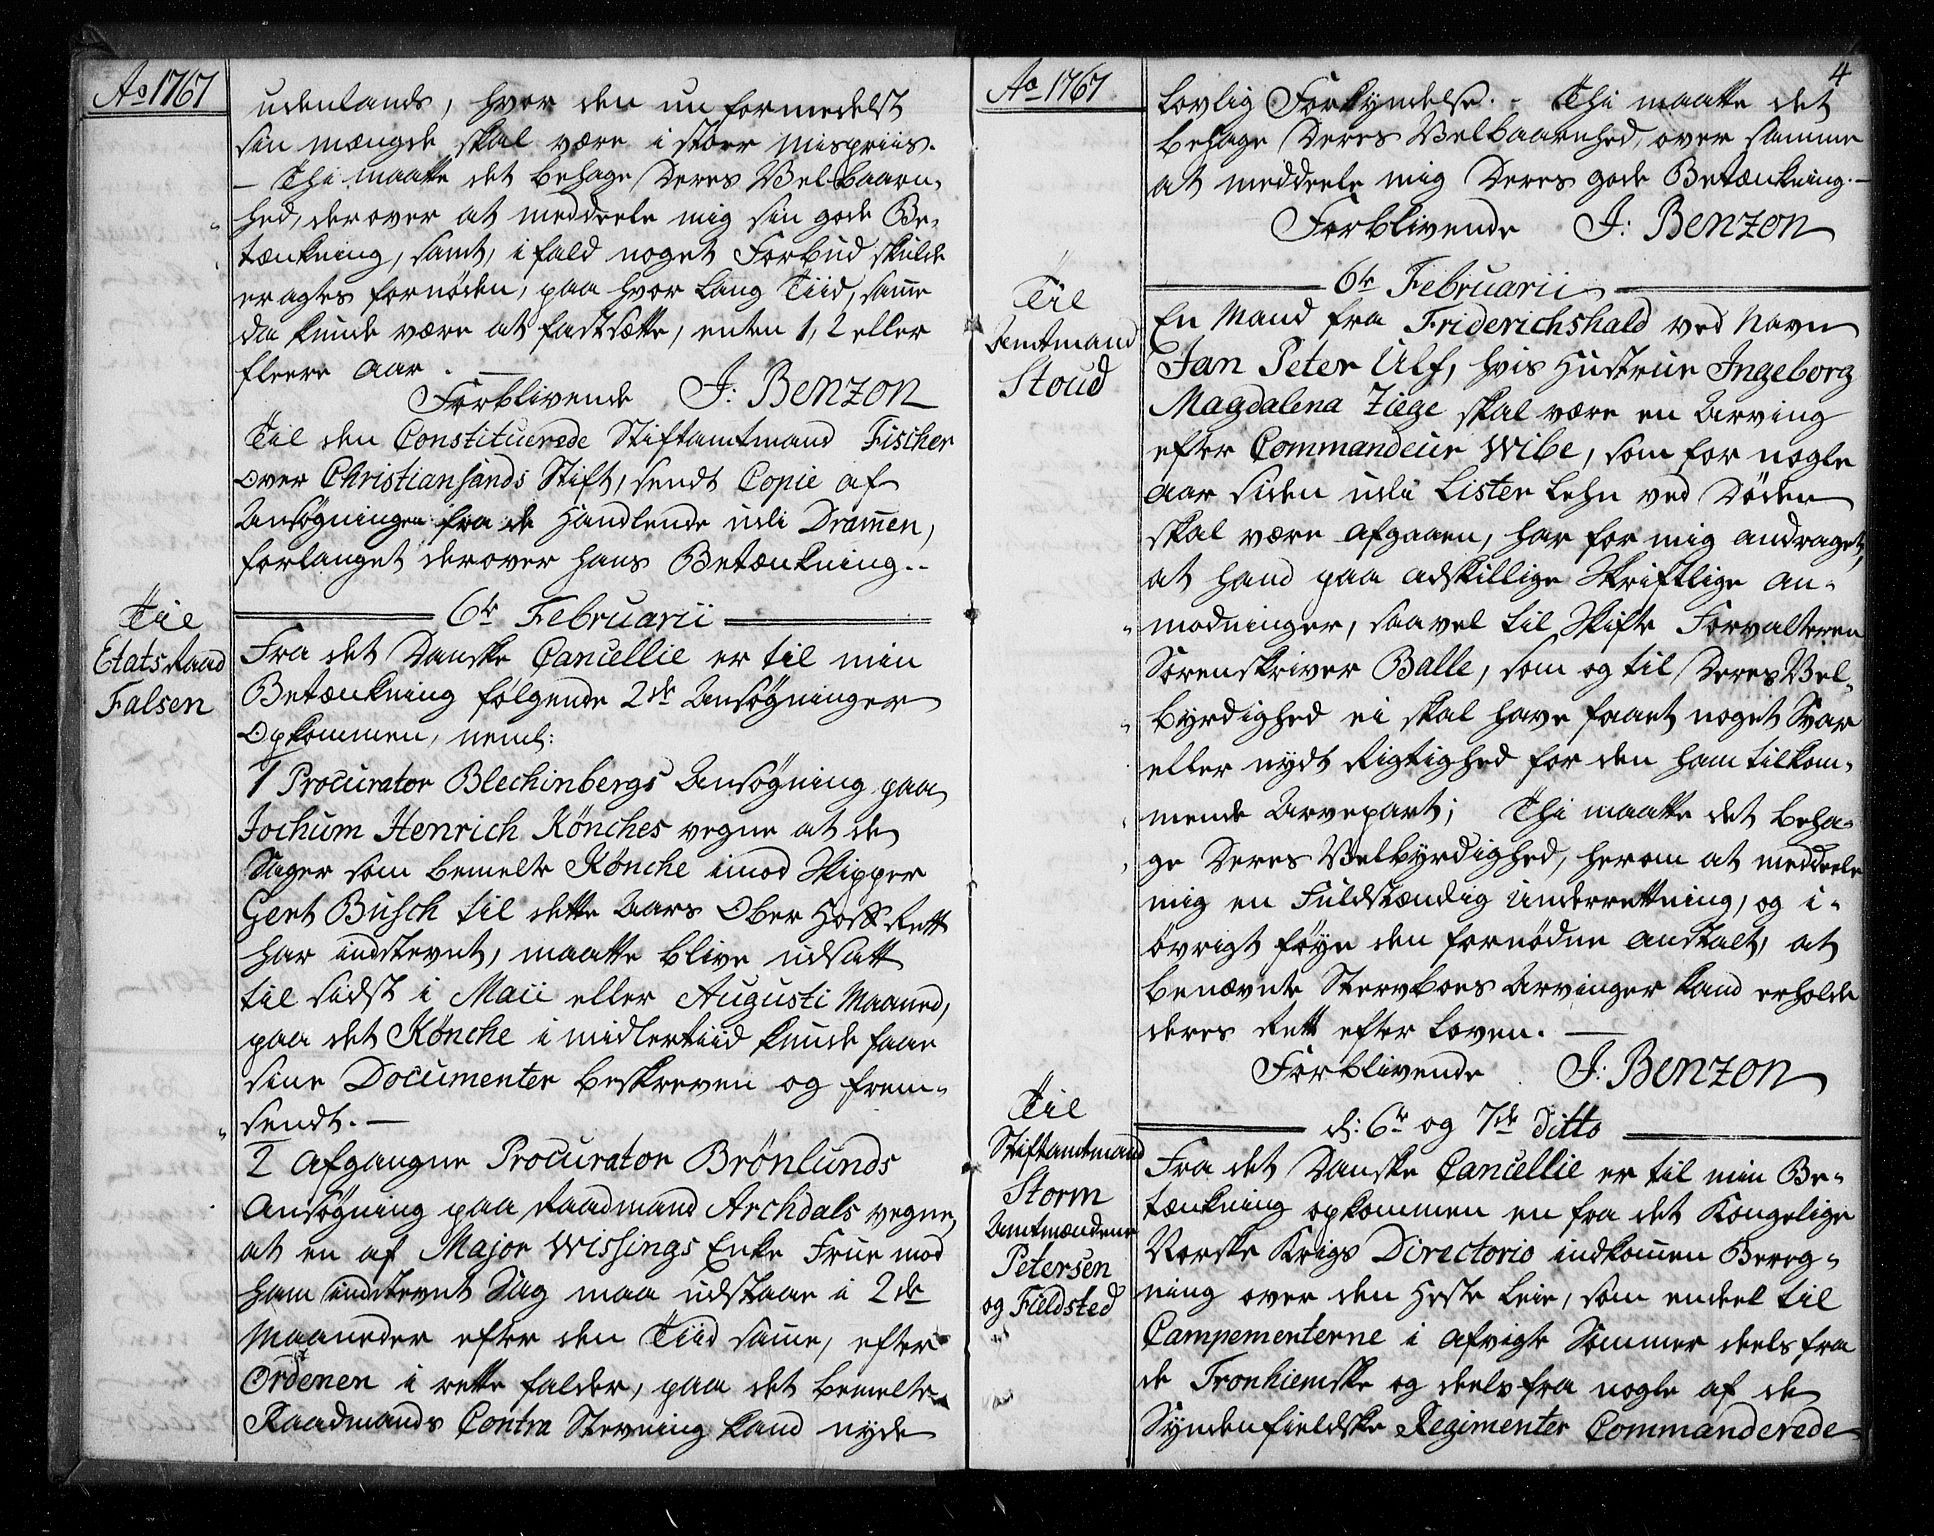 Ao 1767
udenlands, hvor den nu formedelst
sin mængde skal være i stoer mispriis.
– Thi maatte det behage Deres Velbaarn-
hed, derover at meddeele mig sin gode Be-
tænkning, samt, ifald noget Forbud skulde
eragtes fornøden, paa hvor lang Tiid, saṁe
da kunde være at fastsætte, enten 1, 2 eller
fleere aar. –
Forblivende J: Benzon
Til den Constituerede Stiftamtmand Fischer
over Christiansands Stift, sendt Copie af
Ansøgningen fra de Handlende udi Draṁen,
forlanget derover hans Betænkning. -
6te Februarii
Til
Etats Raad
Falsen
Fra det Danske Cancellie er til min
Betænkning følgende 2de Ansøgninger
Opkommen, neml:
1 Procurator Blechinbergs Ansøgning paa
Jochum Henrich Könches vegne at de
Sager som bemelte Könche imod Skipper
Gert Busch til dette Aars Ober Hoff Rett
har indstevnt, maatte blive udsatt
til sidst i Maii eller Augusti Maaned,
paa det Könche i midlertiid kunde faae
sine Documenter beskreven og frem-
sendt. –
2 Afgangne Procurator Brönlunds
Ansøgning paa Raadmand Archdals vegne,
at en af Major Wissings Enke Frue mod
ham indstevnt Sag maa udstaae i 2de
Maaneder efter den Tiid saṁe, efter
Ordenen i rette falder, paa det bemelte
Raadmands Contra Stevning kand nyde
Ao 1767
4
lovlig Forkyndelse. - Thi maatte det
behage Deres Velbaarnhed, over samme
at meddeele mig Deres gode Betænkning. –
Forblivende J: Benzon
6te Februarii
Til
Amtmand
Stoud
En Mand fra Friderichshald ved Navn
Jan Peter Ulf, hvis Hustrue Ingeborg
Magdalena Ziege skal være en Arving
efter Commandeur Wibe, som for nogle
Aar siden udi Lister Lehn ved Døden
skal være afgaaen, har for mig andraget,
at hand paa adskillige Skriftlige an-
modninger, saavel til Skifte Forvalteren
Sorenskriver Balle, som og til Deres Vel-
byrdighed ei skal have faaet noget Svar
eller nydt Rigtighed for den ham tilkom-
mende Arvepart; Thi maatte det beha-
ge Deres Velbyrdighed, herom at meddeele
mig en Fuldstændig underrettning, og i-
øvrigt føye den fornødne anstalt, at
benævnte Stervboes Arvinger kand erholde
deres Rett efter Loven. –
Forblivende J: Benzon
d: 6te og 7de ditto
Til
Stiftamtmand
Storm
Amtmændene
Petersen
og Fieldsted
Fra det Danske Cancellie er til min Be-
tænkning opkommen en fra det Kongelige
Norske Krigs Directorio indkoṁen Bereg-
ning over den Heste Leie, som endeel til
Campementerne i afvigte Sommer deels fra
de Tronhiemske og deels fra nogle af de
Syndenfieldske Regimenter Commanderede